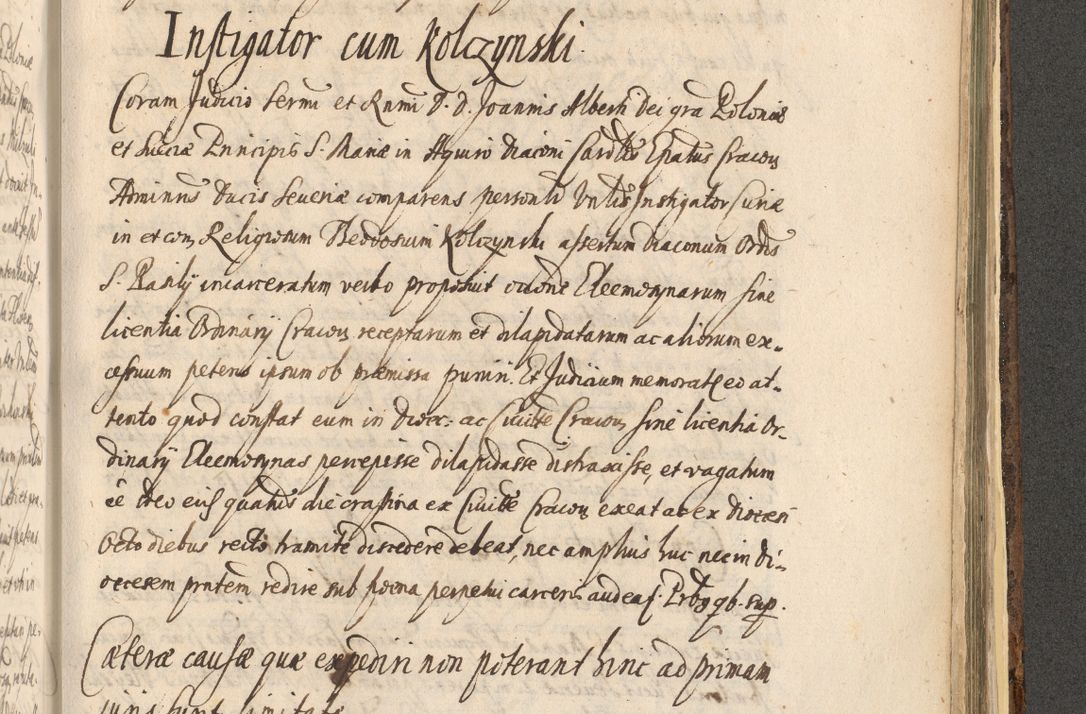 Instigator cum Kolczynski.
Coram Judicio Sermi et Rnmi D. D. Joannis Alberti Dei gra Poloniæ
et Sueciæ Principis S. Mariæ in Aquiro Diaconi Cardlis Epatus Cracou
Administris Ducis Seueriæ comparens personlr Vnlis Instigator Curiæ
in et con Religiosum Theodosium Kolczynski assertum Diaconum Ordis
S. Basilij incarceratum verbo proposuit occõne Eleemosynarum sine
licentia Ordinarij Cracou receptarum et dilapidatarum ac aliorum ex-
cessuum petens ipsum ob præmissa puniri. Et Judicium memorat eo at-
tento quod constat eum in Diœc: ac Ciuitte Cracou sine licentia Or-
dinarij Eleemosynas percepisse dilapidasse distraxisse, et vagatum
ẽe ideo eius quatius die crastina ex Ciuitte Cracou exeat ac ex Diœcesi
Octo diebus recto tramite discedere debeat, nec amplius huc nec in Di-
œcesem pntem redire sub pœna perpetui carceris audeat. Prbus qb. sup.
Cæteræ causæ quæ expediri non poterant hinc ad primam
iuris sunt limitatæ